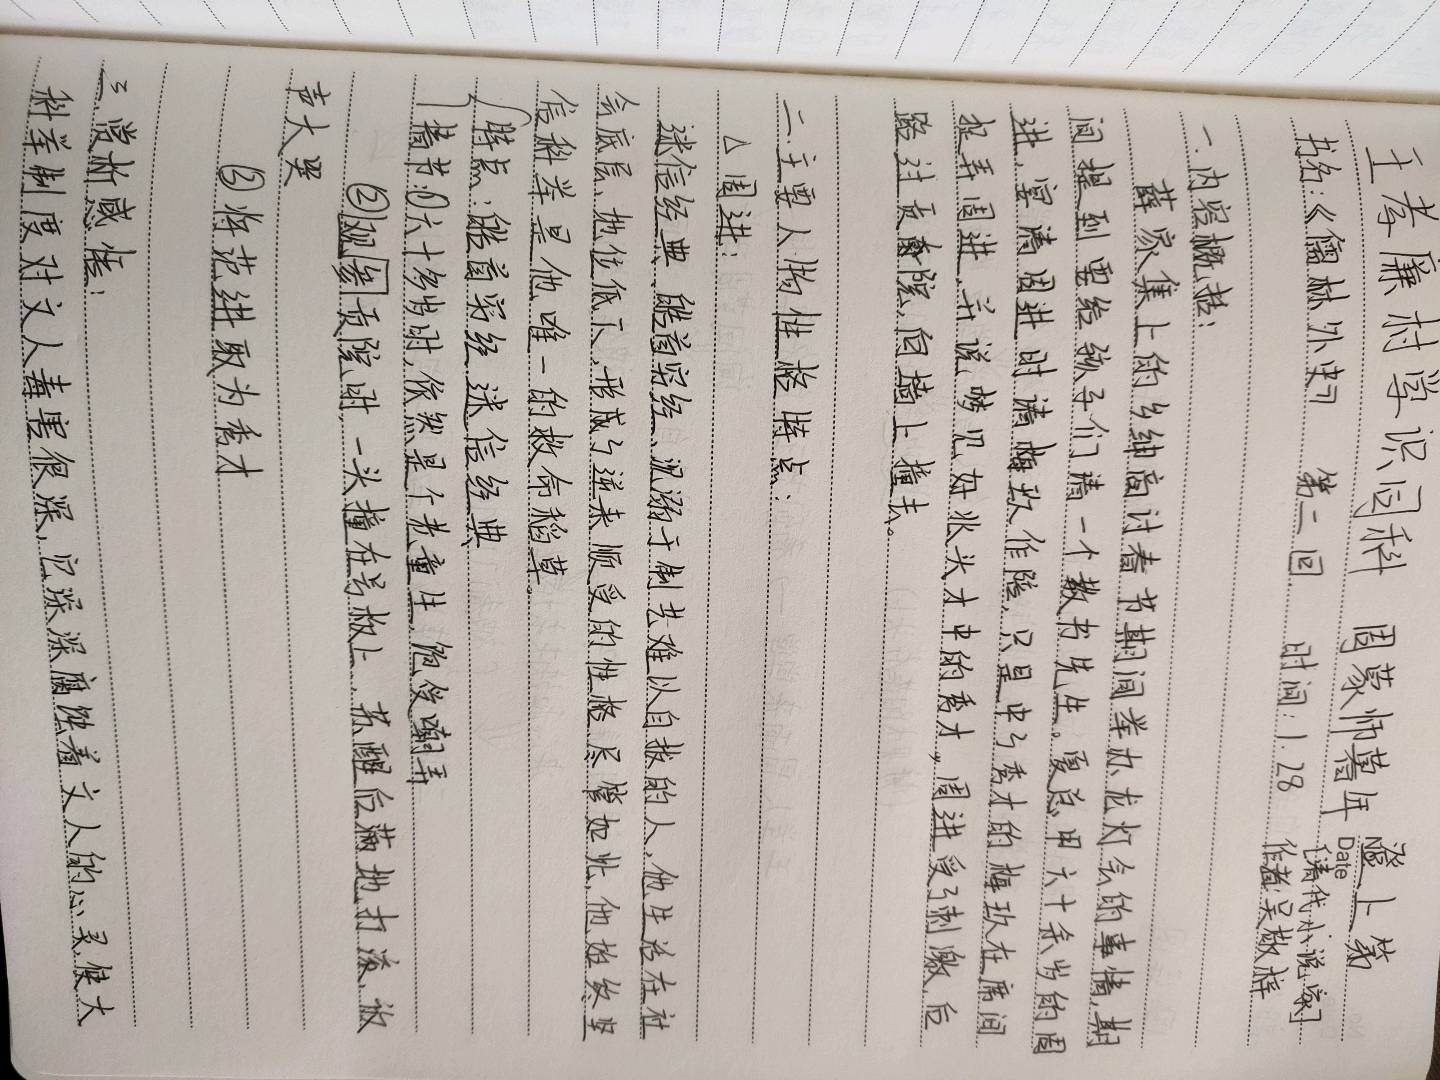 王孝廉村学识同科 周蒙师暮年登上第
Date
书名:《儒林外史》 第二回 时间:1.28 作者:吴敬梓
[清代小说家]
一.内容概括:
薛家集上的乡绅商讨着节期间举办龙灯会的事情,期
间提到要给孩子们请一个教书先生。夏总甲六十余岁的周
进,宴请周进时请梅玖作陪,只是中了秀才的梅玖在席间
捉弄周进,并说"梦见好兆头才中的秀才"。周进受了刺激,后
路过贡院,向墙上撞去。
二.主要人物性格特点:
△周进:
迷信经典、皓首穷经、沉溺于制艺难以自拔的人,他生活在社
会底层、地位低下,形成了逆来顺受的性格,尽管如此,他始终坚
信科举是他唯一的救命稻草。
特点:皓首穷经 迷信经典
情节:①六十多岁时,依然是个老童生,饱受嘲弄
②观参贡院时,一头撞在号板上,苏醒后满地打滚,放
声大哭
③将范进取为秀才
三.赏析感悟:
科举制度对文人毒害很深,它深深腐蚀着文人的心灵,使大